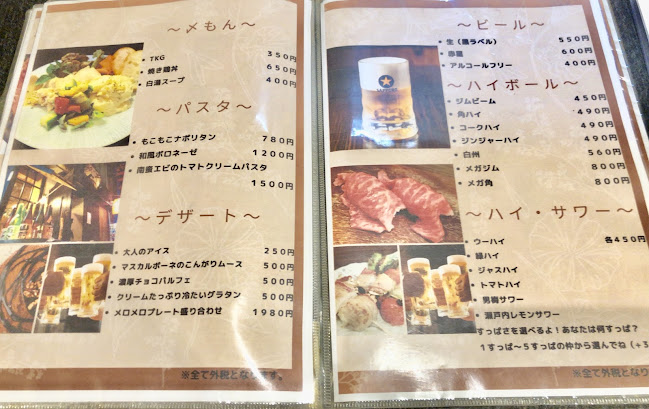 ～〆もん～
TKG 350円
焼き鶏丼 650円
白湯スープ 400円
～パスタ～
もこもこナポリタン 780円
和風ボロネーゼ 1200円
南蛮エビのトマトクリームパスタ
1500円
～デザート～
大人のアイス 250円
マスカルポーネのこんがりムース 500円
濃厚チョコパルフェ 500円
クリームたっぷり冷たいグラタン 500円
メロメロプレート盛り合わせ 1980円
※全て外税となります。
～ビール～
生（黒ラベル） 550円
赤星 600円
アルコールフリー 400円
～ハイボール～
ジムビーム 450円
角ハイ 490円
コークハイ 490円
ジンジャーハイ 490円
白州 560円
メガジム 800円
メガ角 800円
～ハイ・サワー～
ウーハイ 各450円
緑ハイ
ジャスハイ
トマトハイ
男梅サワー
瀬戸内レモンサワー
すっぱさを選べるよ！あなたは何すっぱ？
1すっぱ～5すっぱの仲から選んでね（+3
※全て外税となり